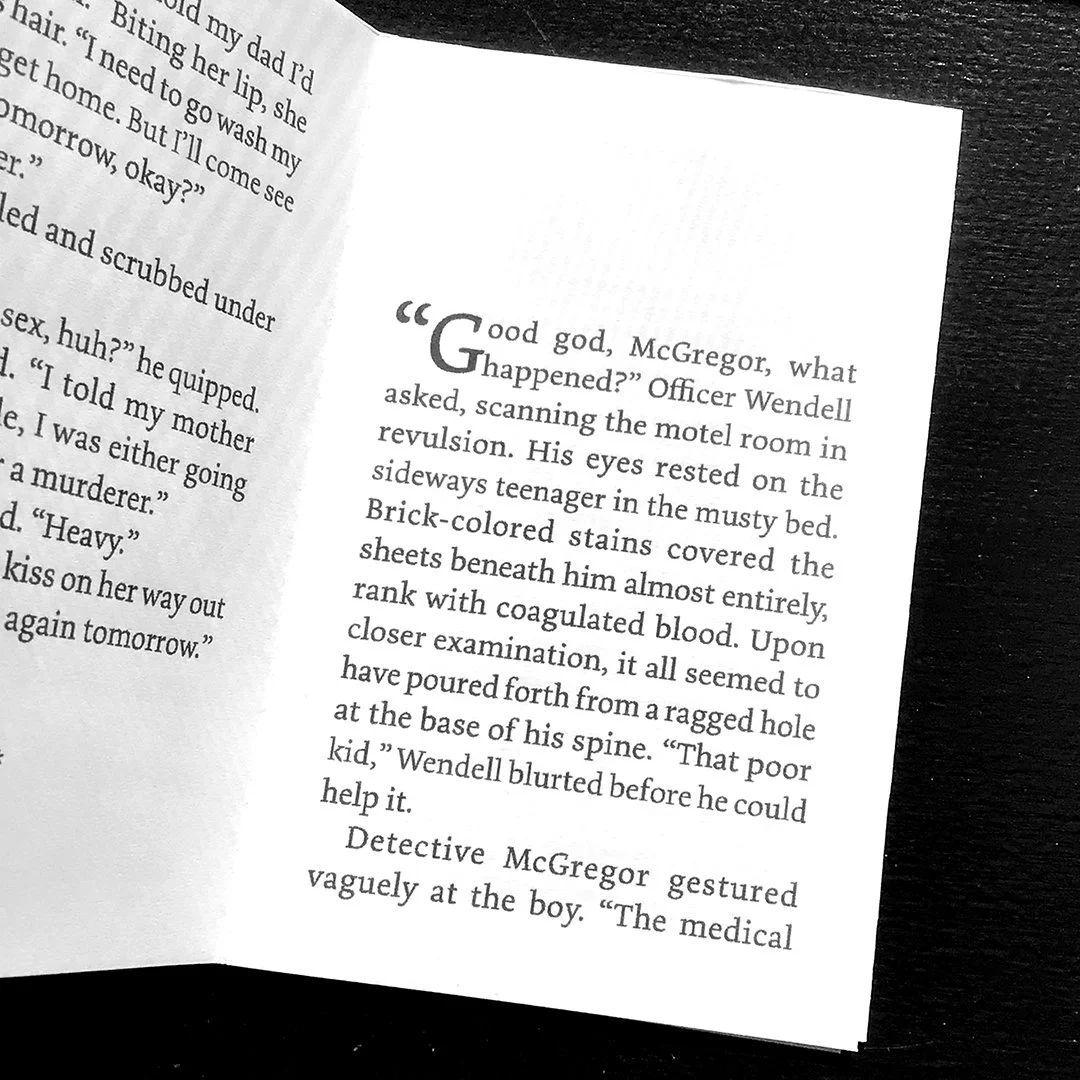 told my dad I'd
Biting her lip, she
hair. “I need to go wash my
get home. But I'll come see
omorrow, okay?”
er.”
led and scrubbed under
sex, huh?” he quipped.
d. “I told my mother
le, I was either going
r a murderer.”
d. “Heavy.”
kiss on her way out
again tomorrow.”
“Good god, McGregor, what
happened?” Officer Wendell
asked, scanning the motel room in
revulsion. His eyes rested on the
sideways teenager in the musty bed.
Brick-colored stains covered the
sheets beneath him almost entirely,
rank with coagulated blood. Upon
closer examination, it all seemed to
have poured forth from a ragged hole
at the base of his spine. “That poor
kid,” Wendell blurted before he could
help it.
Detective McGregor gestured
vaguely at the boy. “The medical